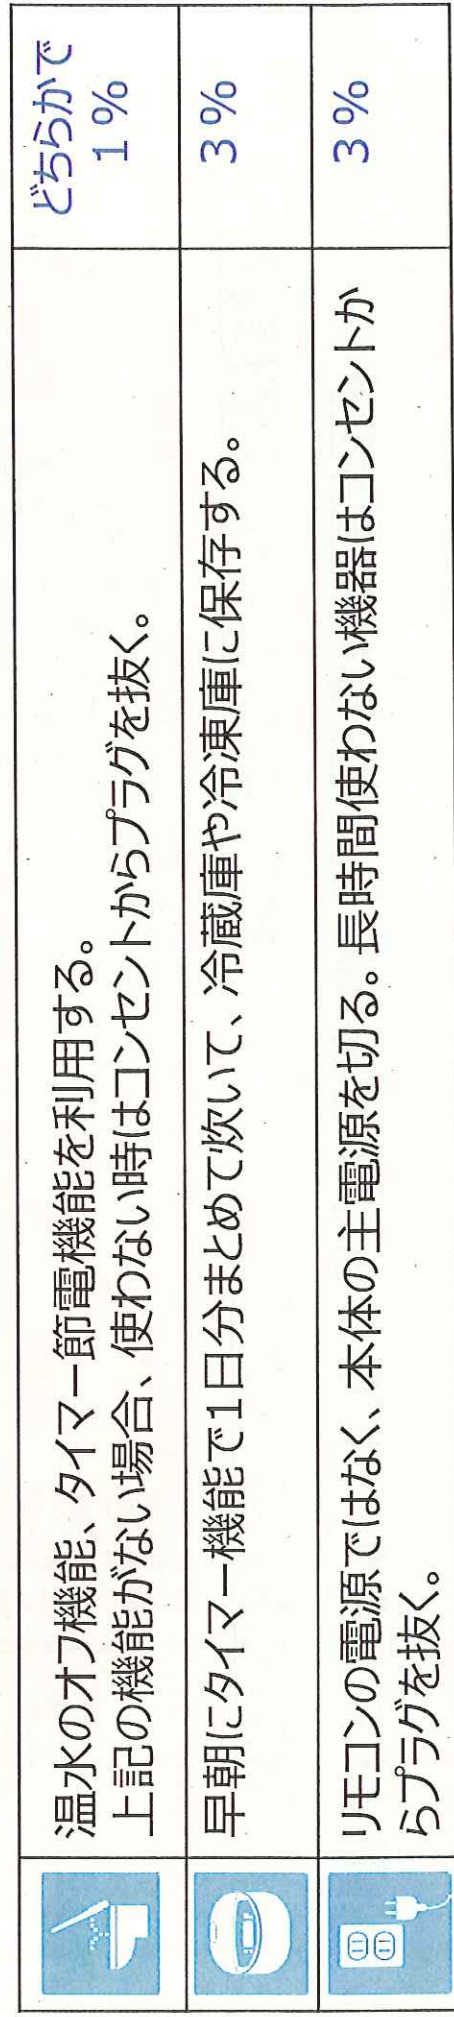 温水のオフ機能、タイマー節電機能を利用する。
上記の機能がない場合、使わない時はコンセントからプラグを抜く。
どちらかで
1%
早朝にタイマー機能で1日分まとめて炊いて、冷蔵庫や冷凍庫に保存する。
3%
リモコンの電源ではなく、本体の主電源を切る。長時間使わない機器はコンセントか
らプラグを抜く。
3%